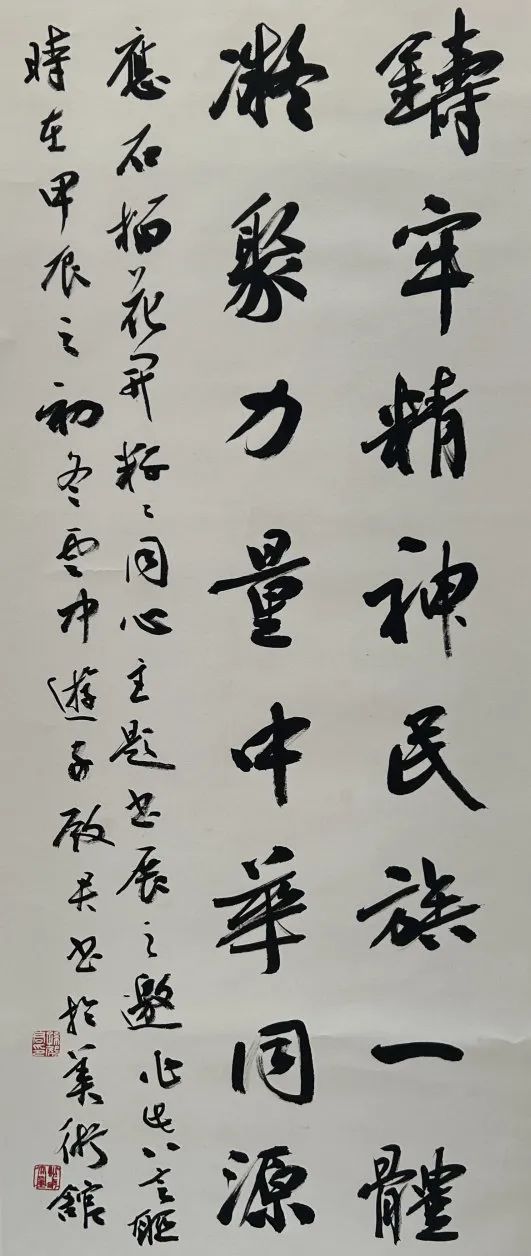 鑄牢精神民族一體
凝聚力量中華同源
應石榴花開籽籽同心主題書展之邀作此八言聯
時在甲辰之初冬雲中遊子啟書於美術館